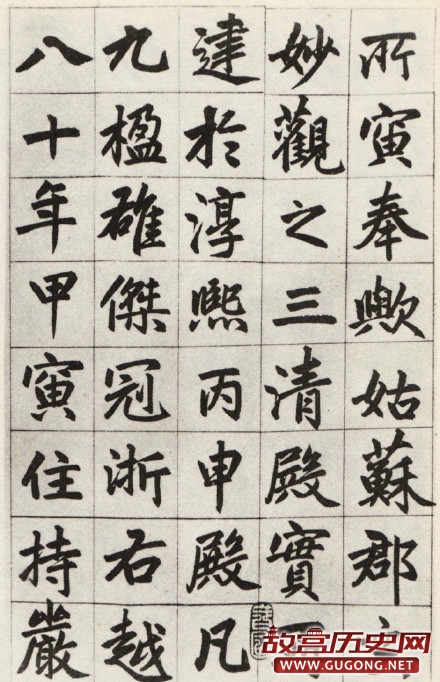 所寅奉歟姑蘇郡
妙觀之三清殿實
建於淳熙丙申殿凡
九楹雄傑冠浙右越
八十年甲寅住持嚴
故宫历史网
WWW.GUGONG.NET